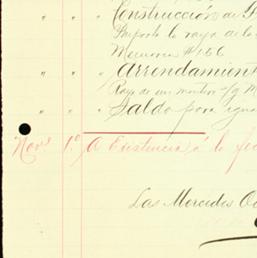 " " " Construcción de
Importe la raya de la
Memoria #186
" " " Arrendamient
Raya de un montero s/g M
" " " Saldo para igua
Nov. 1.º A Existencia á la fec
Las Mercedes Oc